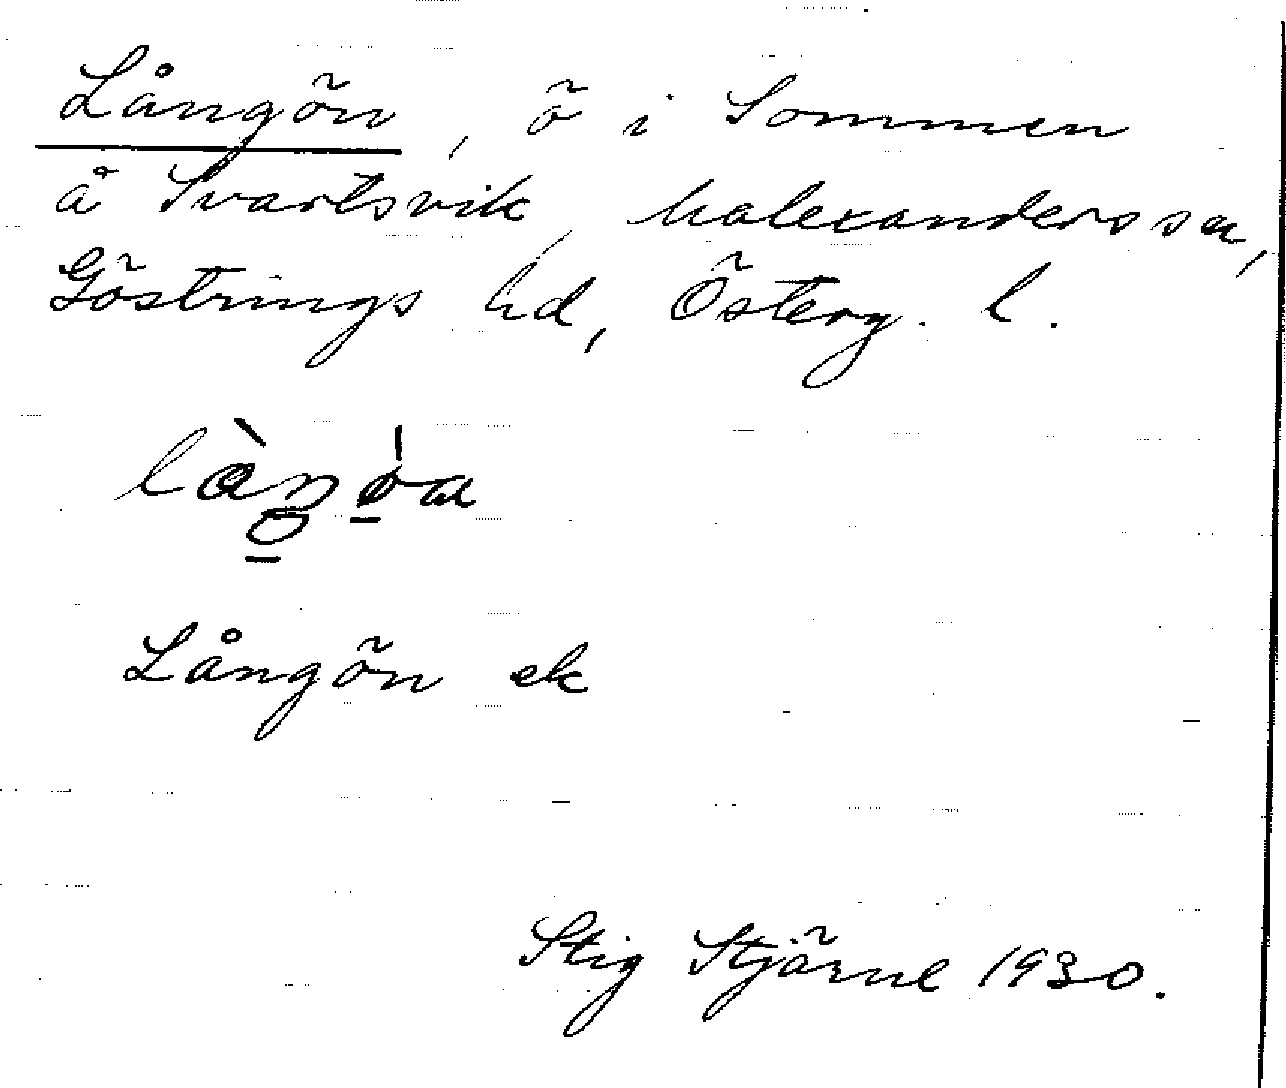 Långön, ö i Sommen
å Svartsvik, Malexanders sn,
Göstrings hd, Österg. l.
Långön ek
Stig Stjärne 1930.